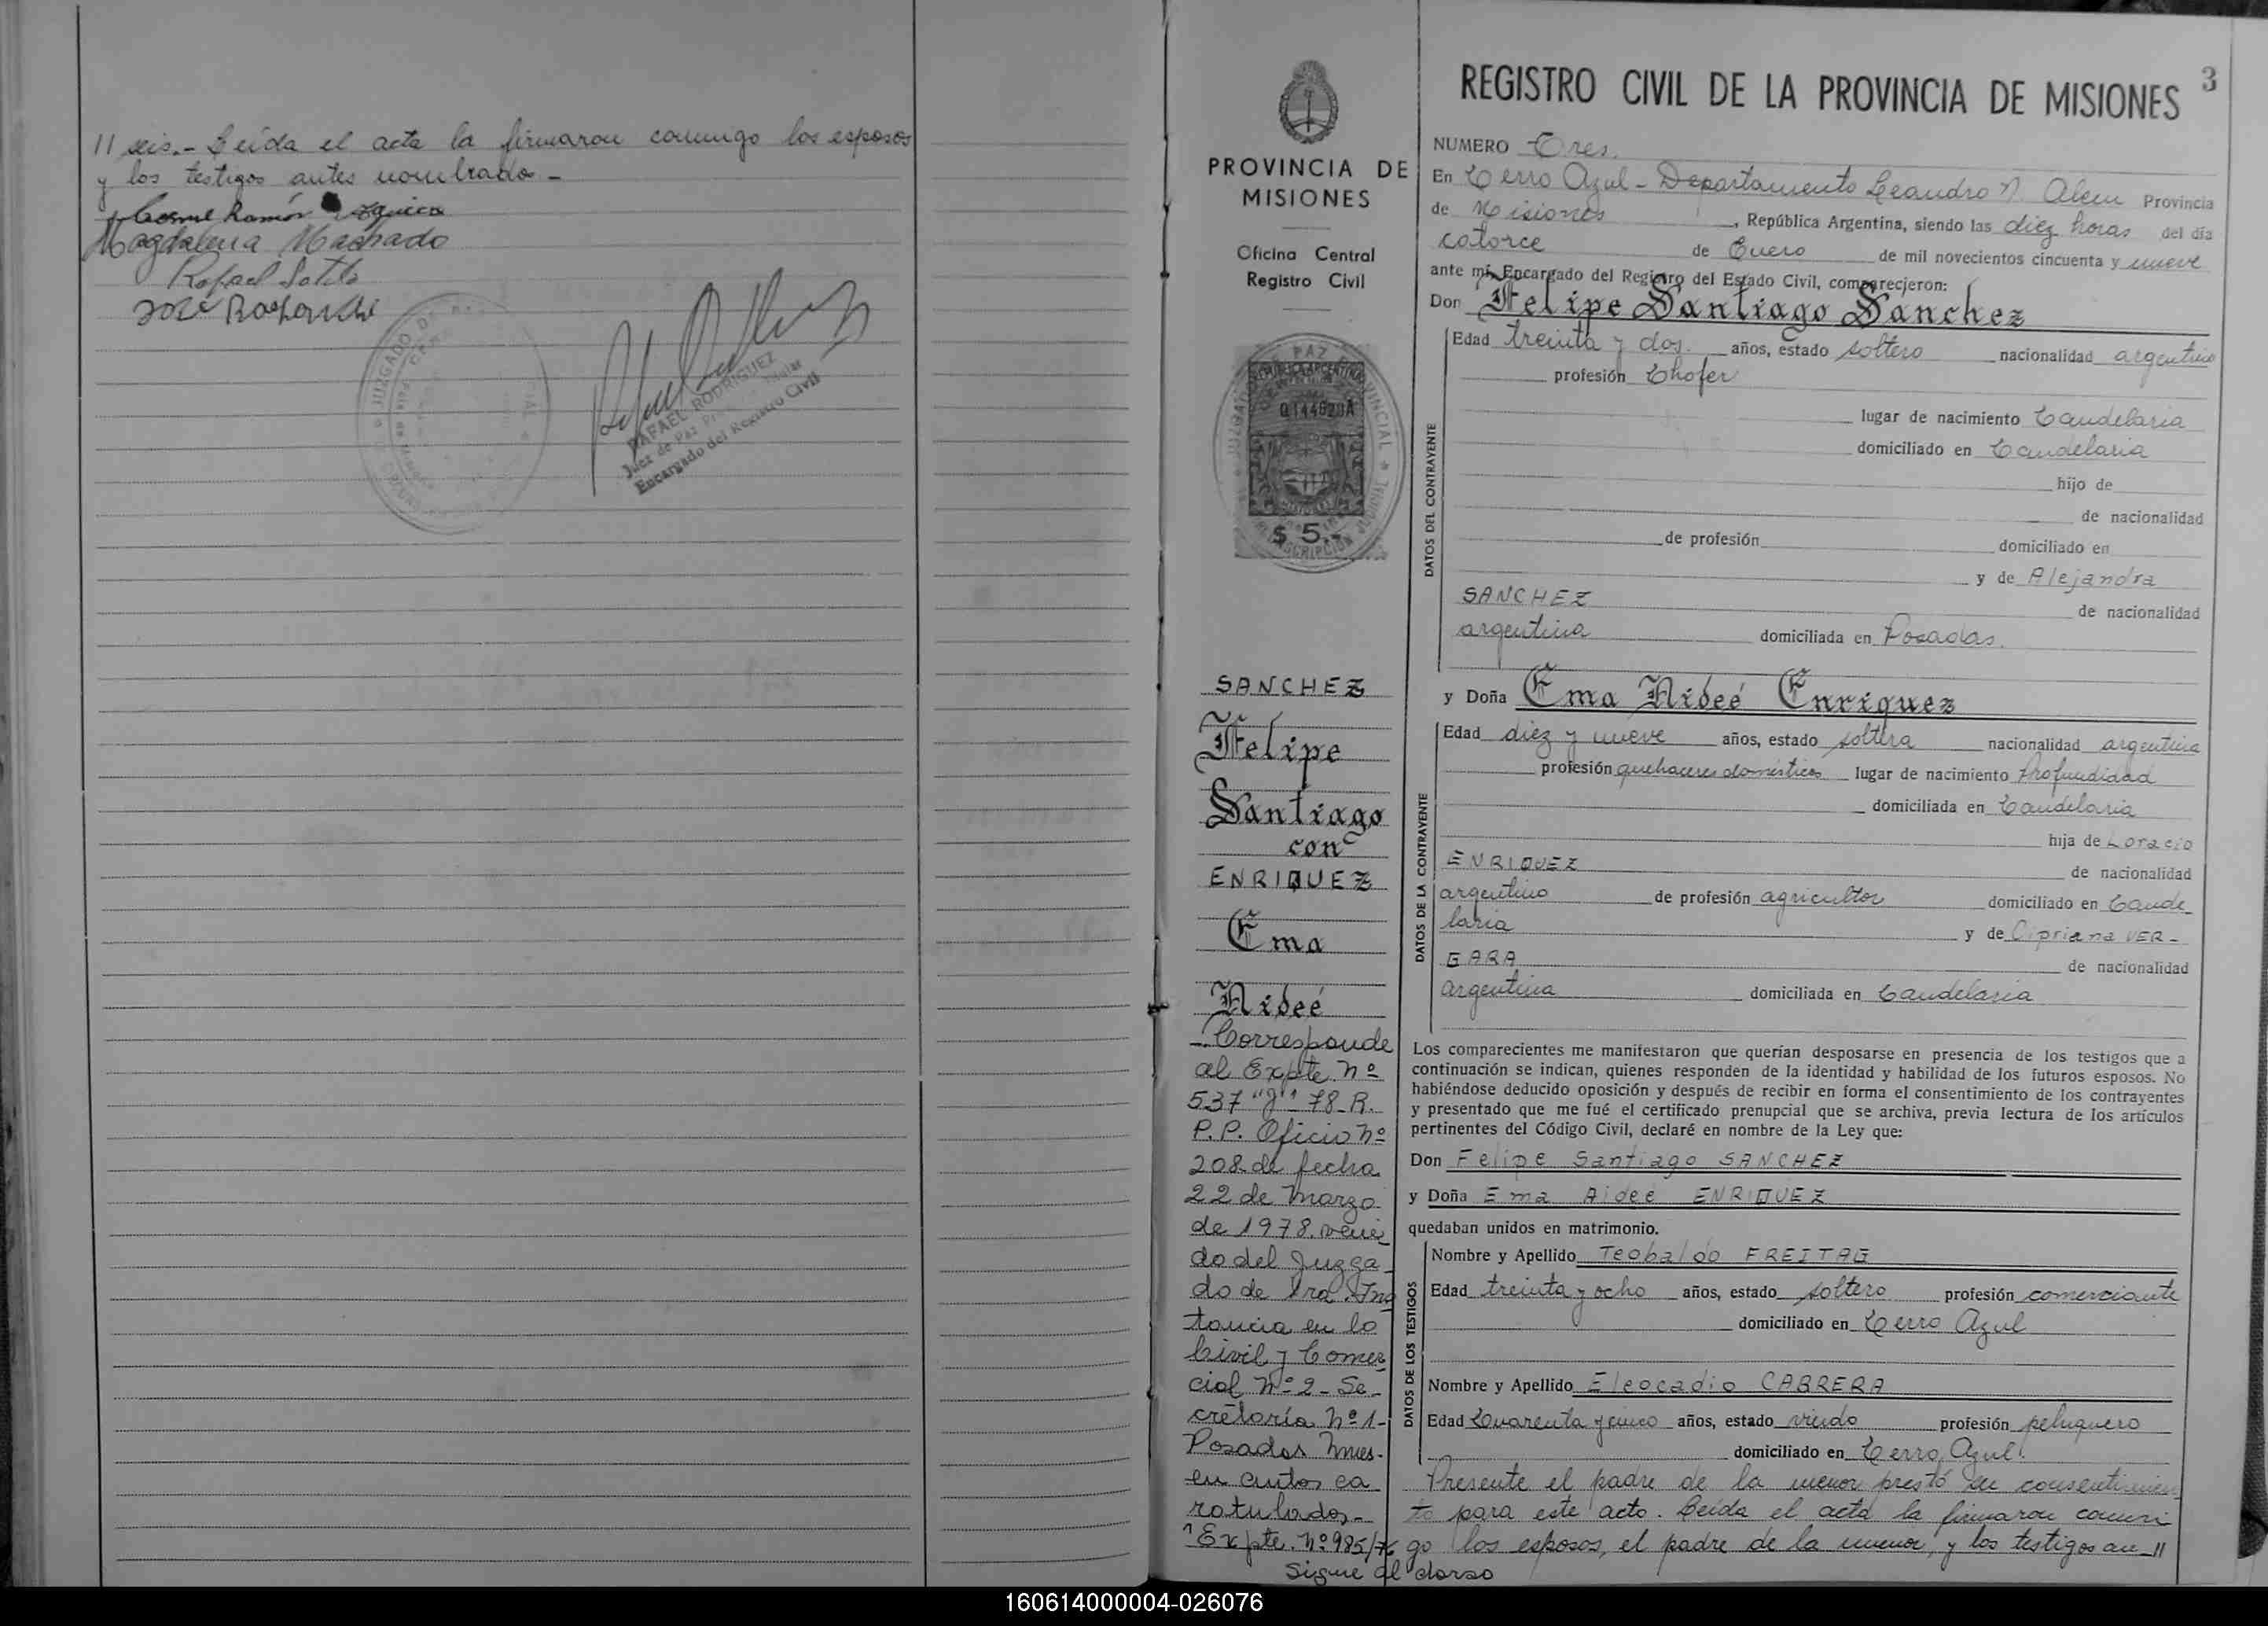 // seis.- Leída el acta la firmaron conmigo los esposos
y los testigos antes nombrados -
Cosme Ramón
Magdalena Machado
Rafael
José
JUZGADO DE
RAFAEL RODRIGUEZ
Juez de Paz
Encargado del Registro Civil
PROVINCIA DE
MISIONES
Oficina Central
Registro Civil
REPUBLICA ARGENTINA
$ 5.-
SANCHEZ
Felipe
Santiago
con
ENRIQUEZ
Ema
Aideé
- Corresponde
al Expte. Nº
537 "J" 78 R.
P.P. Oficio Nº
208 de fecha
22 de Marzo
de 1978. veni
do del Juzga-
do de 1ra. Ins
tancia en lo
Civil y Comer
cial Nº 2 - Se-
cretaría Nº 1-
Posadas Mnes.
en autos ca
ratulados-
"Expte. Nº 985/76
Sigue al dorso
3
REGISTRO CIVIL DE LA PROVINCIA DE MISIONES
NUMERO Tres.
En Cerro Azul - Departamento Leandro N. Alem Provincia
de Misiones, República Argentina, siendo las diez horas del día
catorce de Enero de mil novecientos cincuenta y nueve
ante mí, Encargado del Registro del Estado Civil, comparecieron:
Don Felipe Santiago Sanchez
DATOS DEL CONTRAYENTE
Edad treinta y dos. años, estado soltero nacionalidad argentino
profesión Chofer
lugar de nacimiento Candelaria
domiciliado en Candelaria
hijo de
de nacionalidad
de profesión domiciliado en
y de Alejandra
SANCHEZ de nacionalidad
argentina domiciliada en Posadas.
y Doña Ema Aideé Enriquez
DATOS DE LA CONTRAYENTE
Edad diez y nueve años, estado soltera nacionalidad argentina
profesión quehaceres domesticos lugar de nacimiento Profundidad
domiciliada en Candelaria
hija de Loracio
ENRIQUEZ de nacionalidad
argentino de profesión agricultor domiciliado en Cande-
laria y de Cipriana VER-
GARA de nacionalidad
argentina domiciliada en Candelaria
Los comparecientes me manifestaron que querían desposarse en presencia de los testigos que a
continuación se indican, quienes responden de la identidad y habilidad de los futuros esposos. No
habiéndose deducido oposición y después de recibir en forma el consentimiento de los contrayentes
y presentado que me fué el certificado prenupcial que se archiva, previa lectura de los artículos
pertinentes del Código Civil, declaré en nombre de la Ley que:
Don Felipe Santiago SANCHEZ
y Doña Ema Aidee ENRIQUEZ
quedaban unidos en matrimonio.
DATOS DE LOS TESTIGOS
Nombre y Apellido Teobaldo FREITAG
Edad treinta y ocho años, estado soltero profesión comerciante
domiciliado en Cerro Azul
Nombre y Apellido Eleocadio CABRERA
Edad Cuarenta y cinco años, estado viudo profesión peluquero
domiciliado en Cerro Azul.
Presente el padre de la menor prestó su consentimien
to para este acto. Leída el acta la firmaron conmi
go los esposos, el padre de la menor, y los testigos an-//
160614000004-026076